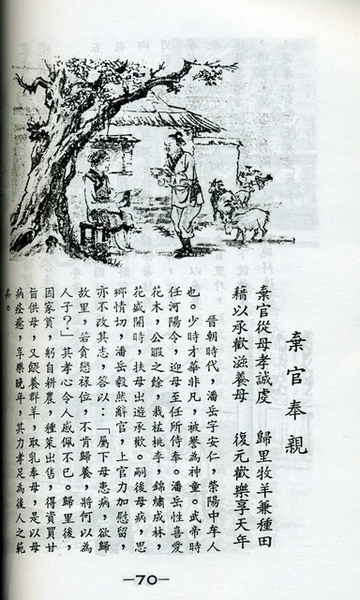 棄官奉親
棄官從母孝誠虔　歸里牧羊兼種田
藉以承歡滋養母　復元歡樂享天年
晉朝時代，潘岳字安仁，滎陽中牟人
也。少時才華非凡，被譽為神童。武帝時
任河陽令，迎母至任所侍奉。潘岳性喜愛
花木，公暇之餘，栽植桃李，錦繡成林，
花盛開時，扶母出遊承歡。嗣後母病，思
鄉情切，潘岳毅然辭官，上官力加慰留，
亦不改其志，答以：「屬下母患病，欲歸
故里，若貪戀祿位，不肯歸養，將何以為
人子？」其孝心令人感佩不已。歸里後，
因家貧，躬自耕農，種菜出售，得資買甘
旨供母，又餵養群羊，取乳奉母，是以母
病痊癒，享樂晚年，其力孝足為後人之範
矣。
—70—